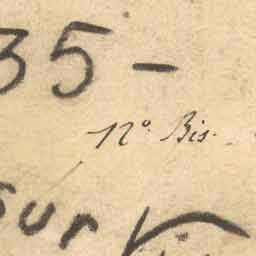 35 -
n.º Bis.
sur